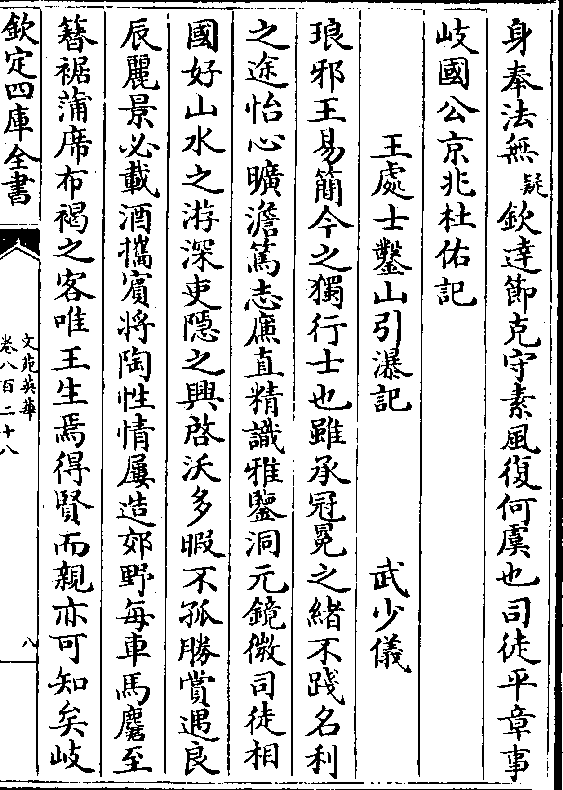 身奉法無疑欽逹節克守素風復何虞也司徒平章事
岐國公京兆杜佑記
王處士鑿山引瀑記　武少儀
琅邪王易簡今之獨行士也雖承冠冕之緒不踐名利
之途怡心曠澹篤志廉直精識雅鑒洞元鏡微司徒相
國好山水之游深吏隱之興啓沃多暇不孤勝賞遇良
辰麗景必載酒攜賓將陶性情屢造郊野每車馬麏至
簪裾蒲席布褐之客唯王生焉得賢而親亦可知矣岐
欽定四庫全書
文苑英華
卷八百二十八
八